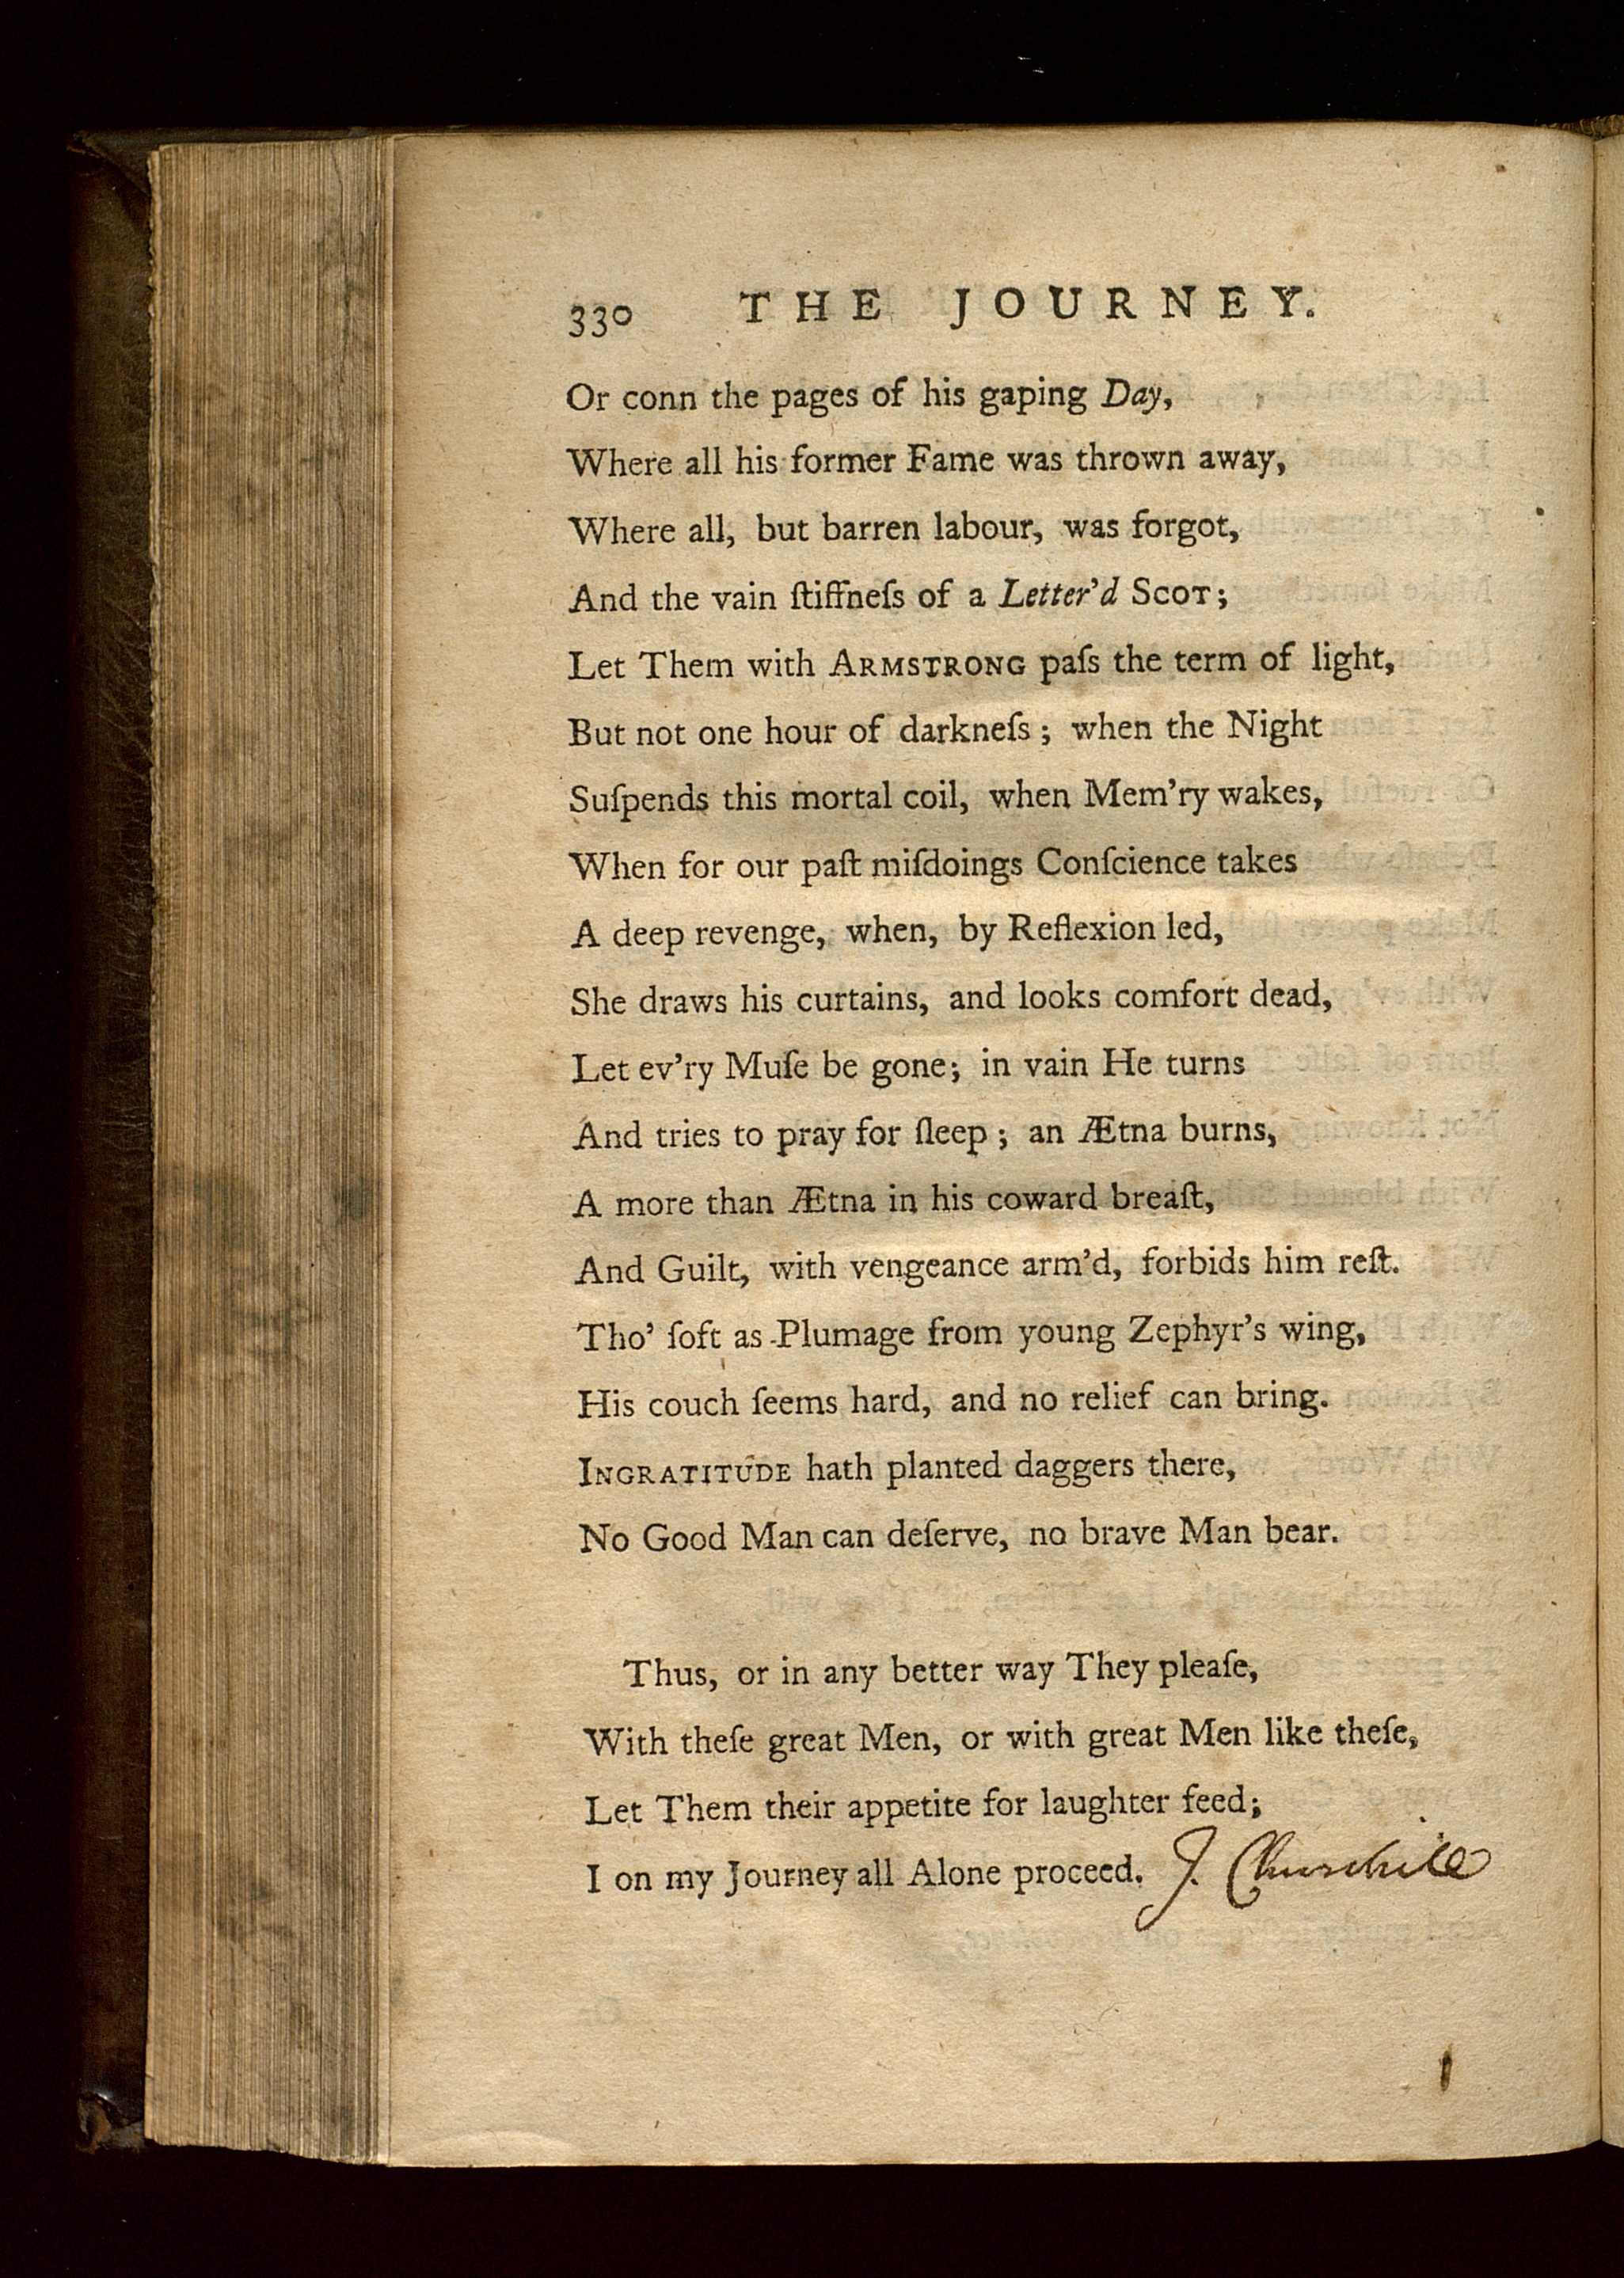 330 THE JOURNEY.
Or conn the pages of his gaping Day,
Where all his former Fame was thrown away,
Where all, but barren labour, was forgot,
And the vain ſtiffneſs of a Letter'd SCOT;
Let Them with ARMSTRONG paſs the term of light,
But not one hour of darkneſs; when the Night
Suſpends this mortal coil, when Mem'ry wakes,
When for our paſt miſdoings Conſcience takes
A deep revenge, when, by Reflexion led,
She draws his curtains, and looks comfort dead,
Let ev'ry Muſe be gone; in vain He turns
And tries to pray for ſleep; an Ætna burns,
A more than Ætna in his coward breaſt,
And Guilt, with vengeance arm'd, forbids him reſt.
Tho' ſoft as Plumage from young Zephyr's wing,
His couch ſeems hard, and no relief can bring.
INGRATITUDE hath planted daggers there,
No Good Man can deſerve, no brave Man bear.
Thus, or in any better way They pleaſe,
With theſe great Men, or with great Men like theſe,
Let Them their appetite for laughter feed;
I on my Journey all Alone proceed. J. Churchill